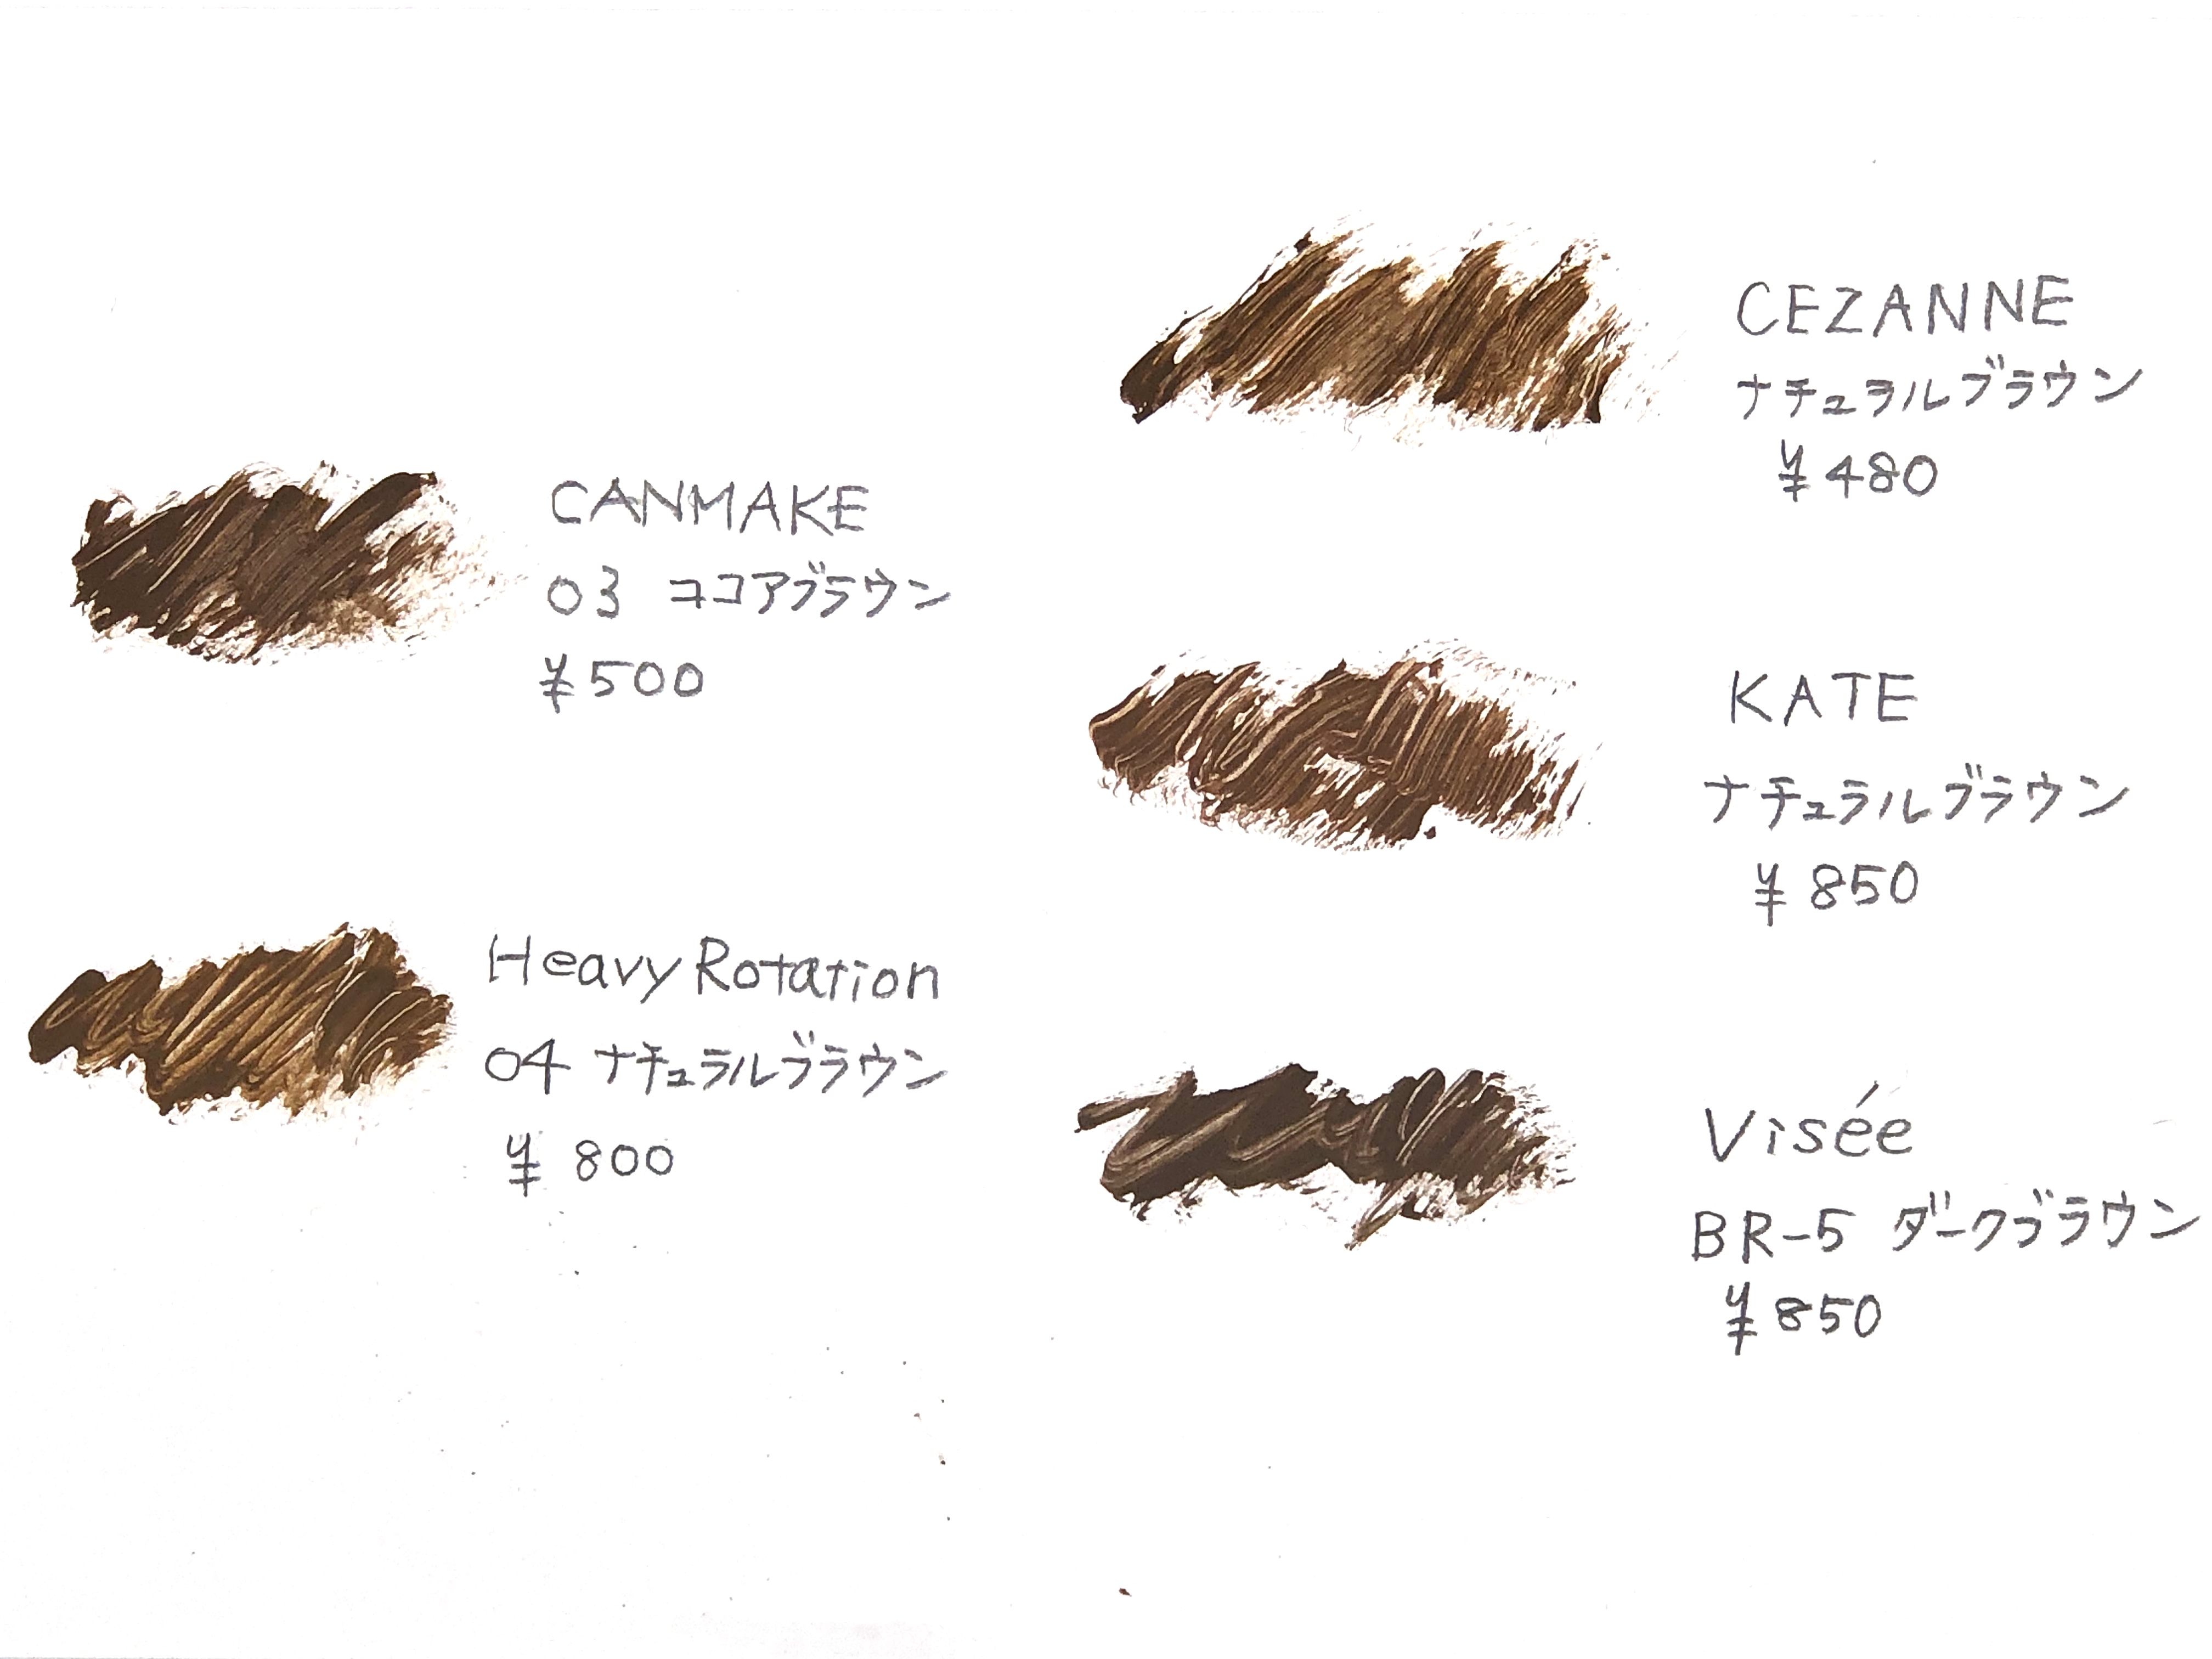 CANMAKE
03 ココアブラウン
¥500
Heavy Rotation
04 ナチュラルブラウン
¥800
CEZANNE
ナチュラルブラウン
¥480
KATE
ナチュラルブラウン
¥850
Visée
BR-5 ダークブラウン
¥850